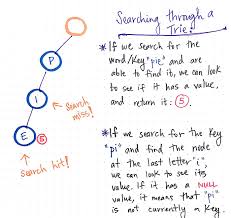 Searching through a
Trie!
* If we search for the
word/key "pie" and are
able to find it, we can look
to see if it has a value,
and return it: 5.
* If we search for the key
"pi" and find the node
at the last letter "i",
we can look to see its
value. If it has a NULL
value, it means that "pi"
is not currently a key.
P
I
search
miss!
E
5
search hit!